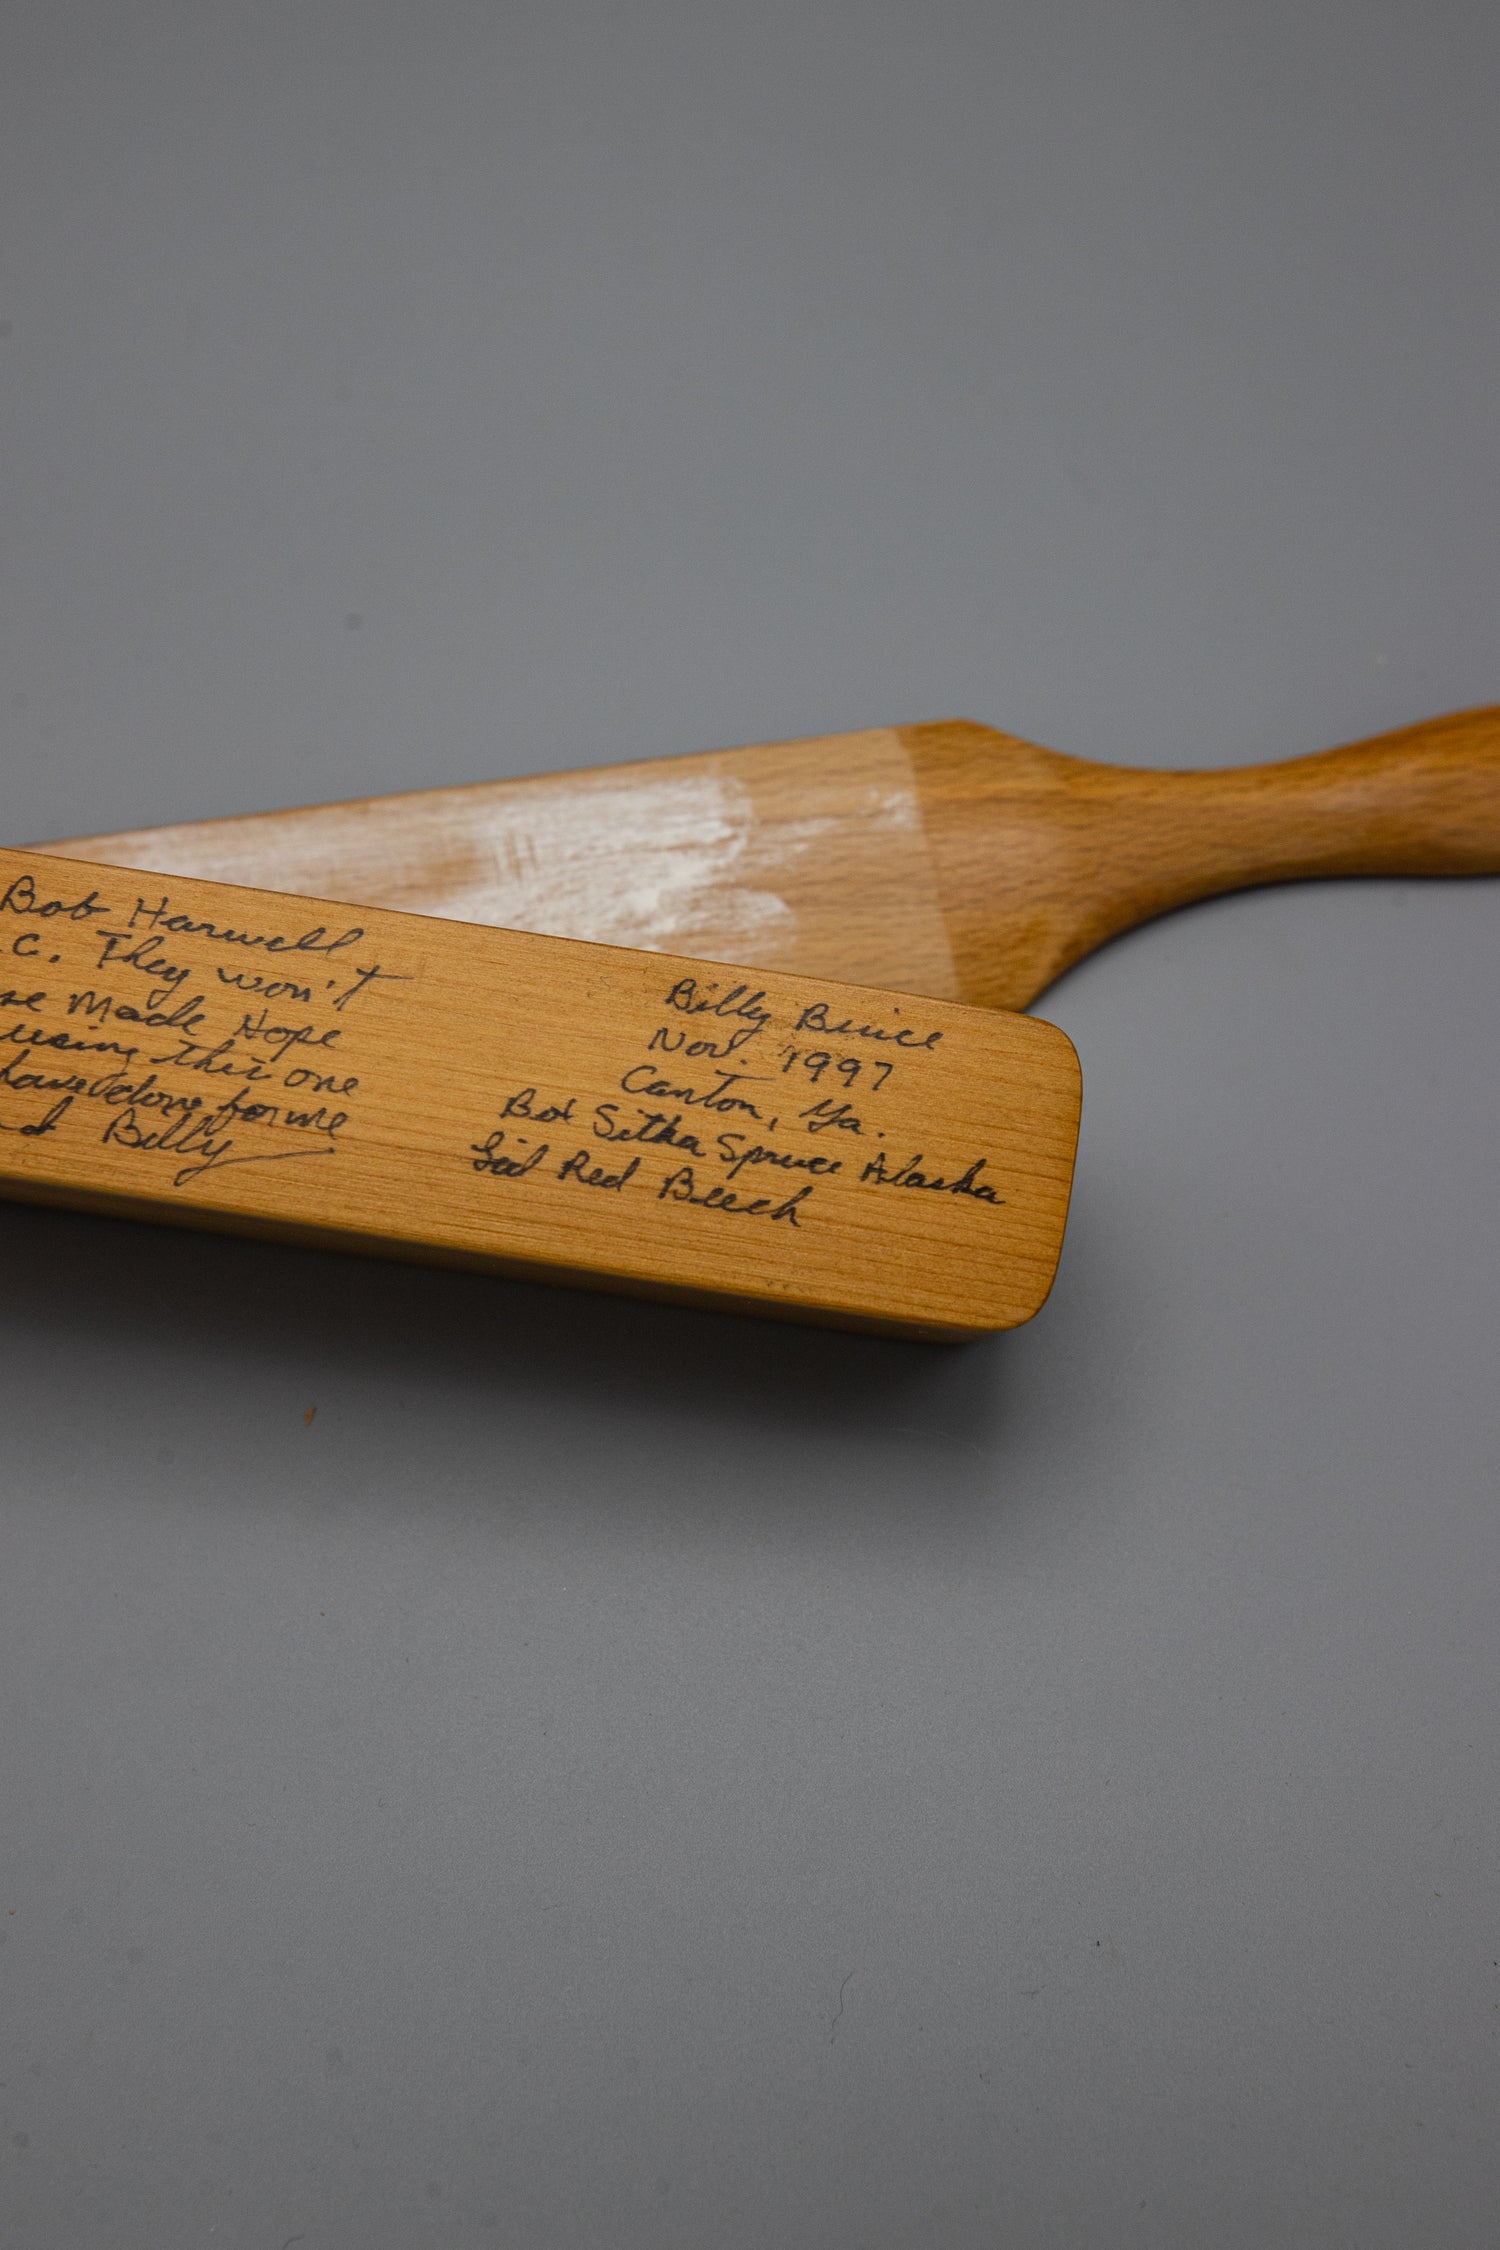 Bob Harwell
.C. They won't
se Made Hope
using this one
have done for me
Billy
Billy Buice
Nov. 1997
Canton, Ga.
Box Sitka Spruce Alaska
Lid Red Beech